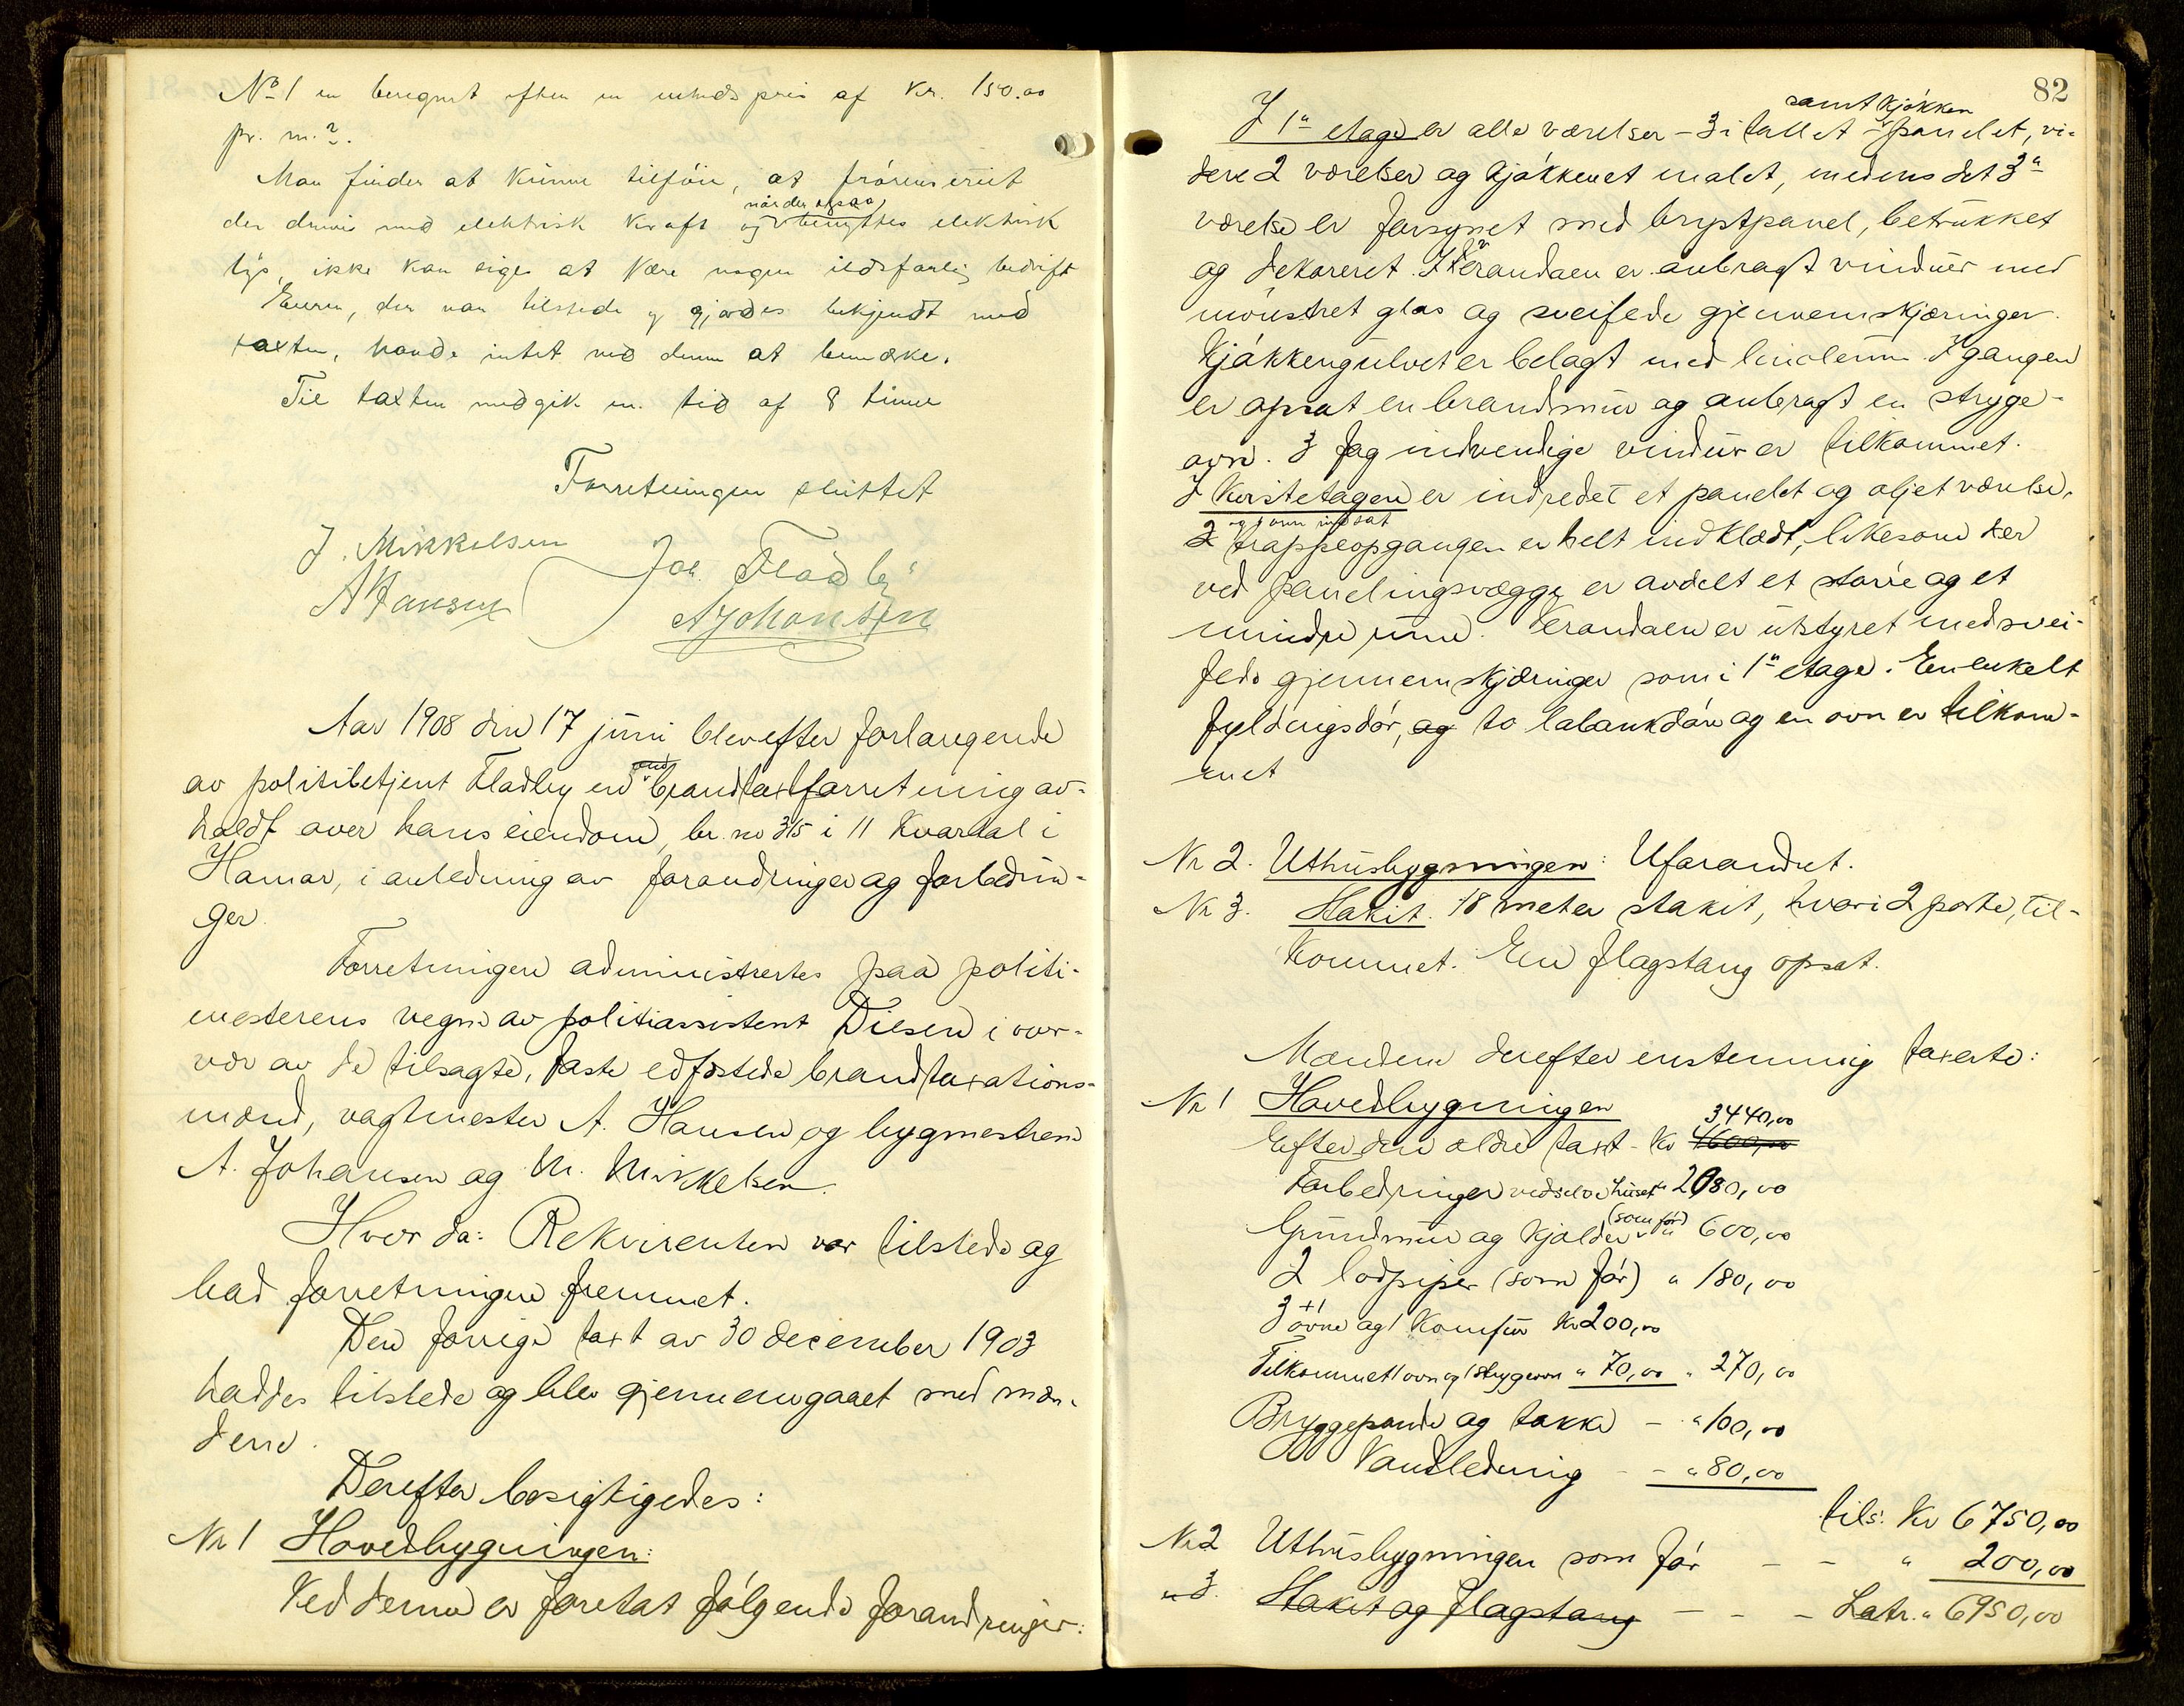 No 1 er beregnet efter en enheds pris af Kr. 150.00
pr. m.2.
Man finder at kunne tilföie, at
der drives med elektrisk Kraft og når der ogsaa benyttes elektrisk
lys, ikke kan siges at være nogen ildsfarlig bedrift
Eieren, der var tilstede og gjordes bekjendt med
taxten, havde intet ved denne at bemærke.
Til taxten medgik en tid af 8 timer
Forretningen sluttet
J. Mikkelsen
Joh. Fladby
A Hansen
A Johansen
Aar 1908 den 17 juni blev efter forlangende
av politibetjent Fladby en brandtaxtforretning av-
holdt over hans eiendom, br. no 315 i 11 Kvartal i
Hamar, i anledning av forandringer og forbedrin-
ger.
Forretningen administrertes paa politi-
mesterens vegne av politiassistent Diesen i over-
vær av de tilsagte, faste edfæstede brandtaxations-
mænd, vagtmester A. Hansen og bygmestrene
A. Johansen og M. Mikkelsen.
Hvor da: Rekvirenten var tilstede og
bad forretningen fremmet.
Den forrige taxt av 30 december 1903
haddes tilstede og blev gjennemgaaet med mæn-
dene.
Derefter besigtigedes:
Nr 1 Hovedbygningen:
Ved denne er foretat følgende forandringer:
82
I 1ste etage er alle værelser – 3 i tallet – samt kjøkken panelet, vi-
dere 2 værelser og kjøkkenet malet, medens det 3die
værelse er forsynet med brystpanel, betrukket
og dekoreret. I verandaen er anbragt vinduer med
mønstret glas og sveifede gjennemskjæringer.
Kjøkkengulvet er belagt med linoleum. I gangen
er opsat en brandmur og anbragt en stryge-
ovn. 3 fag indvendige vinduer er tilkommet.
I Kvistetagen er indredet et panelet og oljet værelse,
og 1 ovn indsat
2 trappeopgangen er helt indklædt, likesom her
ved panelingsvægge er avdelt et større og et
mindre rum. Verandaen er utstyret med svei-
fede gjennemskjæringer som i 1ste etage. En enkelt
fyldingsdør, og to labankdøre og en ovn er tilkom-
met
Nr 2. Uthusbygningen: Uforandret.
Nr 3. Stakit. 18 meter stakit, hvori 2 porte, til-
kommet. En flagstang opsat.
Mændene derefter enstemmig taxerte:
Nr 1 Hovedbygningen
3,440,00
Efter den ældre taxt - Kr 4600,00
Forbedringer ved selve huset " 2080,00
Grundmur og kjælder (som før) " 600,00
2 lodpiper (som før) " 180,00
3 +1 ovne og 1 Komfur Kr 200,00
Tilkommet 1 ovn og 1 strygeovn " 70,00 " 270,00
Bryggepande og takke – " 100,00
Vandledning – – " 80,00
tils. Kr 6750,00
Nr 2 Uthusbygningen som før – – " 200,00
" 3. Stakit og flagstang – – – Latr. " 6950,00